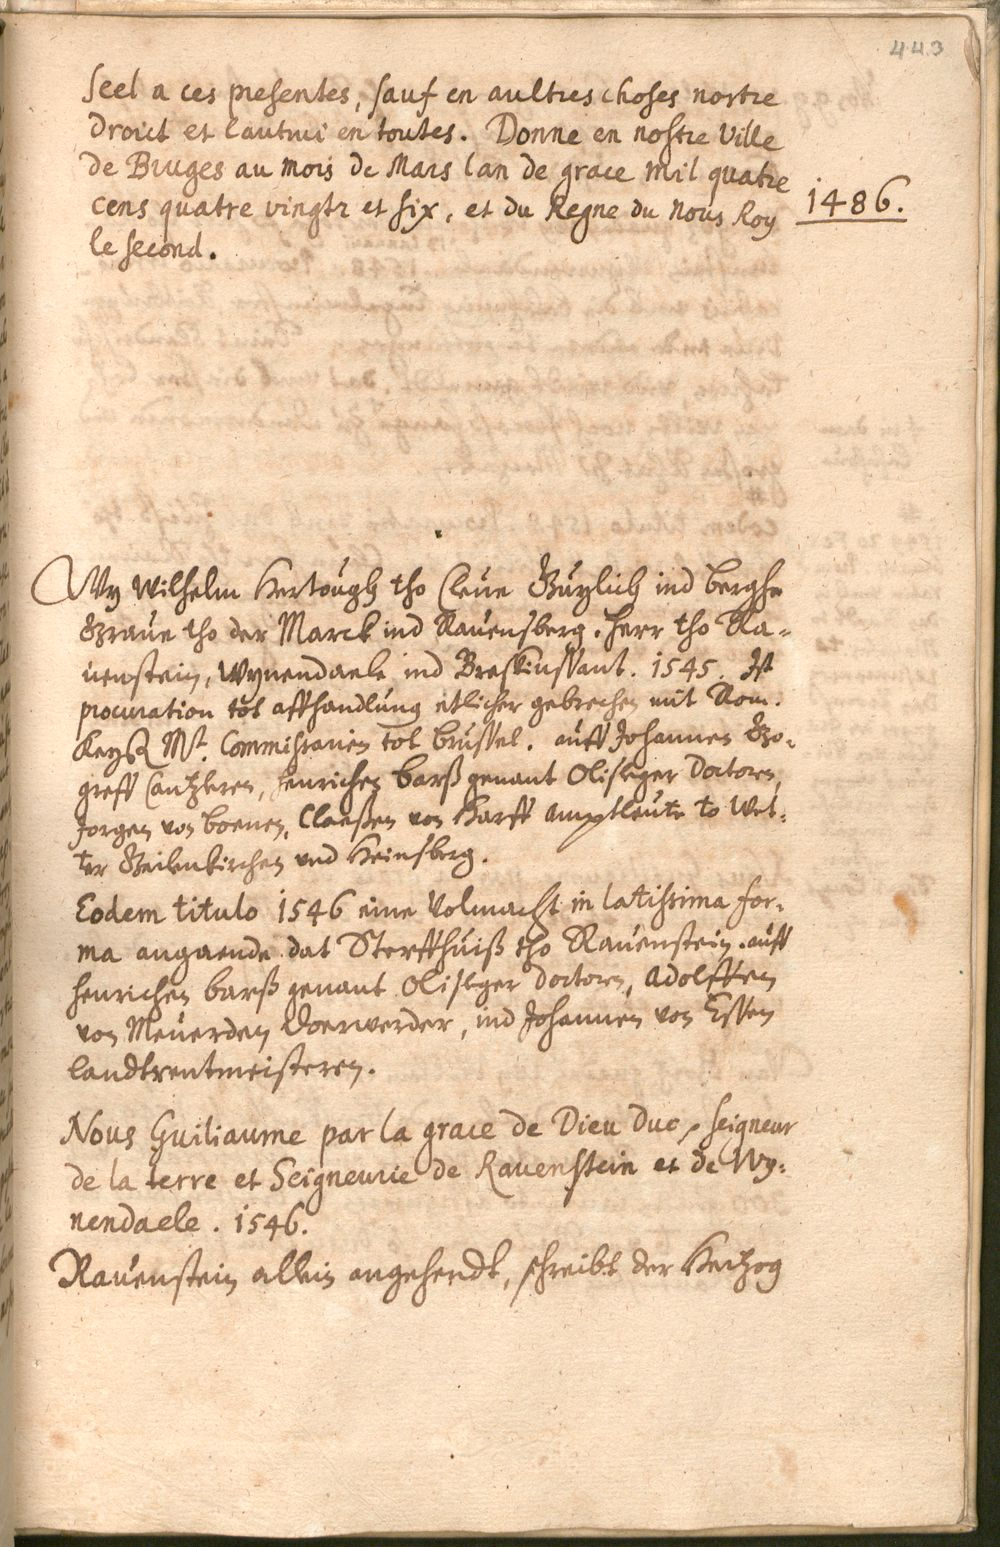 443
Seel a ces presentes, sauf en aultres choses nostre
droict et lautrui en toutes. Donne en nostre Ville
de Bruges au mois de Mars lan de grace Mil quatre
cens quatre vingtz et six, et du Regne du Nous Roy
1486.
le second.
Wy Wilhelm Hertough tho Cleue Guylich ind berghe
Graue tho der Marck ind Rauensberg. Herr tho Ra-
uenstein, Wynendaele ind Breskinssant. 1545. Ist
procuration tot affhandlung etlicher gebrechen mit Rom.
Keys Mt. Commissarien tot brussel. auff Johannen Go-
greff Cantzleren, henrichen barß genant Olisleger Doctoren,
Jorgen von boenen, Claeßen von Harff Amptleute to Wet-
ter Geilenkirchen und Heinsberg.
Eodem titulo 1546 eine Volmacht in latissima for-
ma angaende dat Sterffhuiß tho Rauenstein. auff
henrichen barß genant Olisleger doctoren, Adolffen
von Meuerden Doerwerder, ind Johannen von Essen
landtrentmeisteren.
Nous Guiliaume par la grace de Dieu Duc, seigneur
de la terre et Seigneurie de Rauenstein et de Wy-
nendaele. 1546.
Rauenstein allein angehendt, schreibt der Hertzog